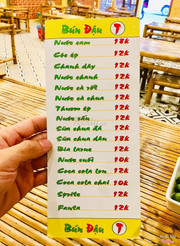 Bún Đậu
Nước cam 18k
Cóc ép 12k
Chanh dây 12k
Nước chanh 12k
Nước cà rốt 12k
Nước cà chua 12k
Thơm ép 12k
Nước sấu 12k
Sữa chua đá 12k
Sữa chua dầm 18k
Bia larue 12k
Nước suối 10k
Coca cola lon 12k
Coca cola chai 10k
Sprite 12k
Fanta 12k
Bún Đậu